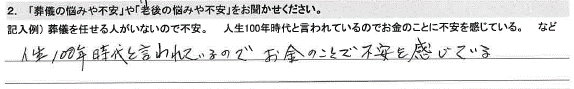 2. 「葬儀の悩みや不安」や「老後の悩みや不安」をお聞かせください。
記入例）葬儀を任せる人がいないので不安。 人生100年時代と言われているのでお金のことに不安を感じている。 など
人生100年時代と言われているので お金のことで不安を感じている